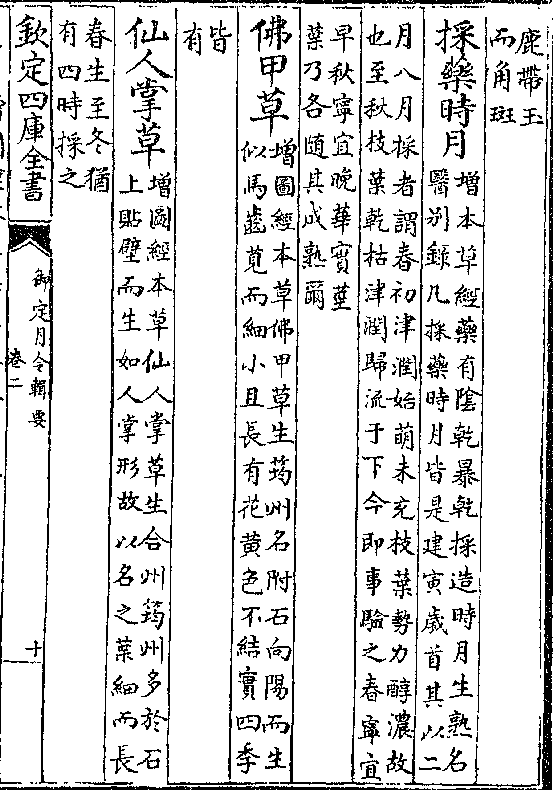 鹿帶玉
而角斑
採藥時月
增本草經藥有陰乾暴乾採造時月生熟名
醫别錄凡採藥時月皆是建寅歲首其以二
月八月採者謂春初津潤始萌未充枝葉勢力醇濃故
也至秋枝葉乾枯津潤歸流于下今即事驗之春寧宜
早秋寧宜晚華實莖
葉乃各随其成熟爾
佛甲草
增圖經本草佛甲草生筠州名附石向陽而生
似馬齒莧而細小且長有花黄色不結實四季
皆
有
仙人掌草
增圖經本草仙人掌草生合州筠州多於石
上貼壁而生如人掌形故以名之葉細而長
春生至冬猶
有四時採之
欽定四庫全書
御定月令輯要
卷二
十